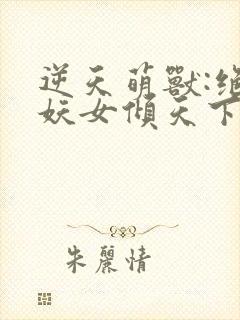 逆天萌獸:絕
妖女傾天下
朱麗情